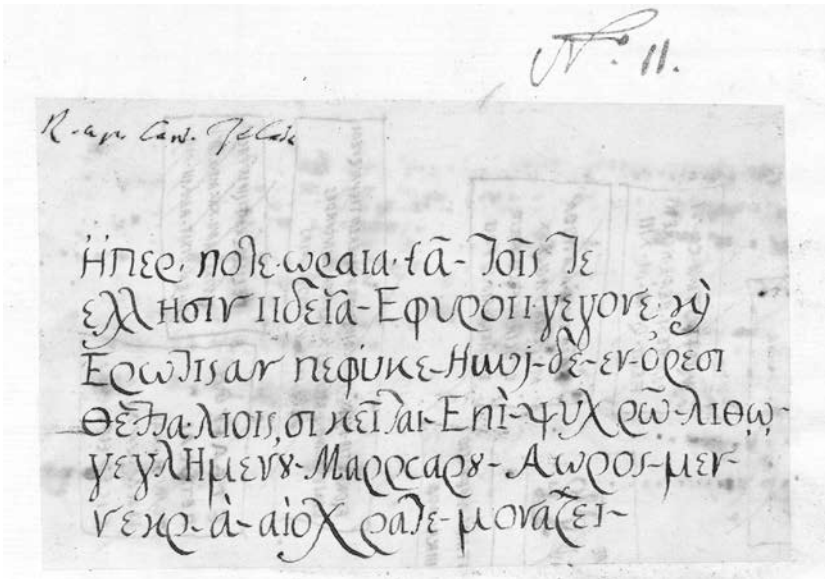 N.º 11.
ἩΠερ· ποτε·ωραια·ἐᾶ- τοῖς τε
ελλησιν ηδεῖα- Εφυροιι γεγονε κὺ
Ερωτισαν πεφύκε- Ηωοj-δὲ-εν-ὄρεσι
Θὲτταλιοις, σι κεῖται- Επὶ-ψυχρῶ-λιθῳ-
γεγλΗμενȣ- Μαρρσαρȣ- Αωρος-μεν-
νεκρ-ὰ-αἰοχρατε-μοναζει-